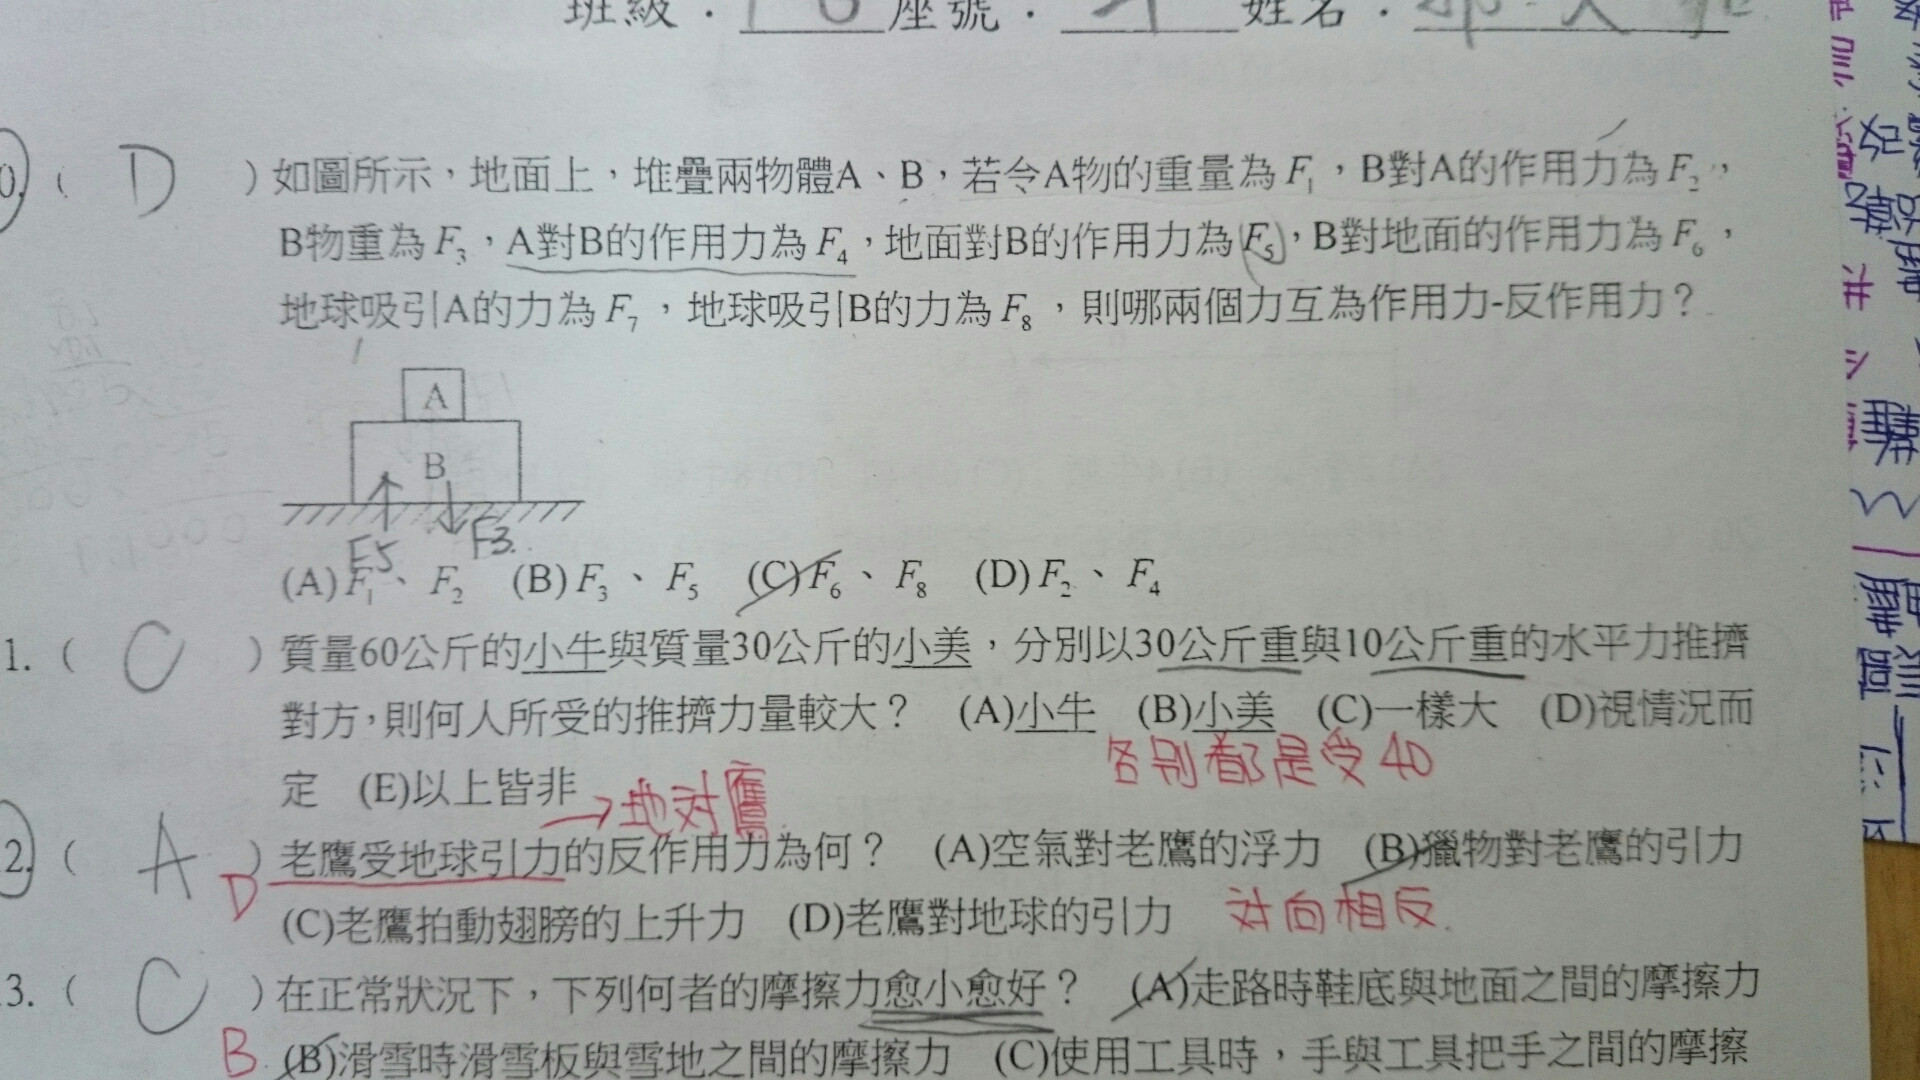 班級：座號：姓名：
0. ( D ) 如圖所示，地面上，堆疊兩物體A、B，若令A物的重量為F₁，B對A的作用力為F₂，
B物重為F₃，A對B的作用力為F₄，地面對B的作用力為F₅，B對地面的作用力為F₆，
地球吸引A的力為F₇，地球吸引B的力為F₈，則哪兩個力互為作用力-反作用力？
A
B
F5 F3
(A)F₁、F₂ (B)F₃、F₅ (C)F₆、F₈ (D)F₂、F₄
1. ( C ) 質量60公斤的小牛與質量30公斤的小美，分別以30公斤重與10公斤重的水平力推擠
對方，則何人所受的推擠力量較大？ (A)小牛 (B)小美 (C)一樣大 (D)視情況而
各別都是受40
定 (E)以上皆非
→地对鷹
2. ( A ) 老鷹受地球引力的反作用力為何？ (A)空氣對老鷹的浮力 (B)獵物對老鷹的引力
D
(C)老鷹拍動翅膀的上升力 (D)老鷹對地球的引力 对向相反.
3. ( C ) 在正常狀況下，下列何者的摩擦力愈小愈好？ (A)走路時鞋底與地面之間的摩擦力
B (B)滑雪時滑雪板與雪地之間的摩擦力 (C)使用工具時，手與工具把手之間的摩擦